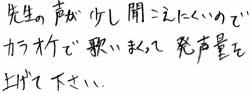 先生の声が少し聞こえにくいので
カラオケで歌いまくって発声量を
上げて下さい.